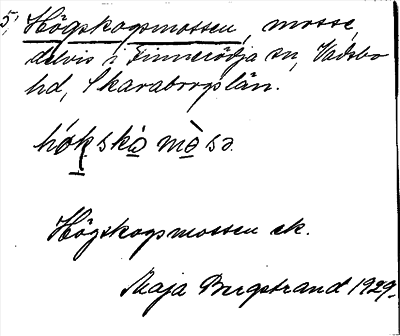 5, Högskogsmossen, mosse,
delvis i Finnerödja sn, Vadsbo
hd, Skaraborgs län.
hókskò mòsə.
Högskogsmossen ek.
Maja Bergstrand 1929.